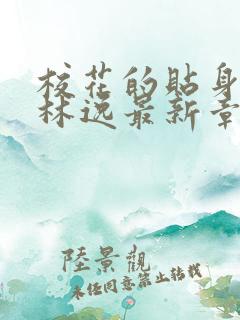 校花的貼身
林逸最新章
陸景觀
未经同意禁止转载